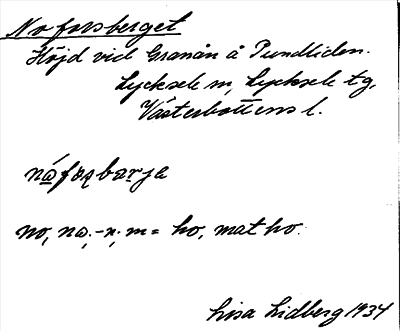 Noforsberget
Höjd vid Granån å Pundliden.
Lycksele sn, Lycksele tg,
Västerbottens l.
náfọʂbarja
no, na, -n, m = ho, mat ho.
Lisa Lidberg 1934